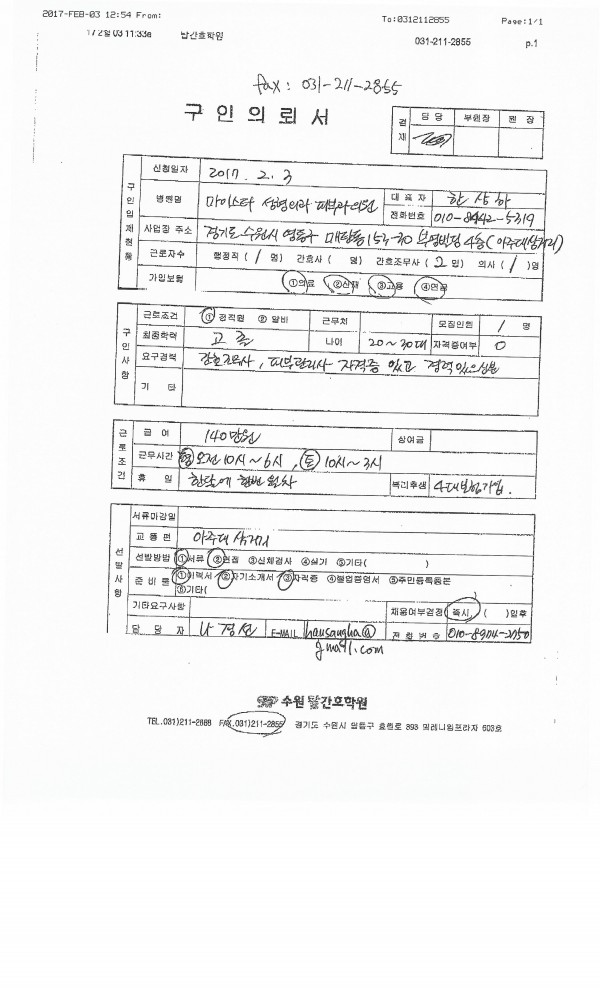 2017-FEB-03 12:54 From: To:0312112855 Page:1/1
11:33a 탑간호학원 031-211-2855 p.1
fax : 031-211-2855
구 인 의 뢰 서
결재 담 당 부원장 원 장
구인업체현황
신청일자 2017. 2. 3
병원명 마이스타 성형외과 피부과의원 대 표 자 한상하
전화번호 010-8942-5319
사업장 주소 경기도 수원시 영통구 매탄동 153-30 부영빌딩 4층 (아주대삼거리)
근로자수 행정직 ( 1 명) 간호사 ( 명) 간호조무사 ( 2 명) 의사 ( 1 )명
가입보험 ①의료 ②산재 ③고용 ④연금
구인사항
근로조건 ① 정직원 ② 알바 근무처 모집인원 1 명
최종학력 고졸 나이 20~30대 자격증여부 O
요구경력 간호조무사, 피부관리사 자격증 있고 경력있으신분
기 타
근로조건
급 여 140만원 상여금
근무시간 오전 10시~6시, (토) 10시~3시
휴 일 한달에 한번 월차 복리후생 4대보험가입.
선발사항
서류마감일
교 통 편 아주대 삼거리
선발방법 ①서류 ②면접 ③신체검사 ④실기 ⑤기타( )
준 비 물 ①이력서 ②자기소개서 ③자격증 ④졸업증명서 ⑤주민등록등본
⑥기타(
기타요구사항 채용여부결정 즉시, ( )일후
담 당 자 나정선 E-MAIL hansangha@gmail.com 전 화 번 호 010-8904-2750
수원 탑간호학원
TEL.031)211-2888 FAX.031)211-2855 경기도 수원시 팔달구 효원로 893 밀레니엄프라자 603호